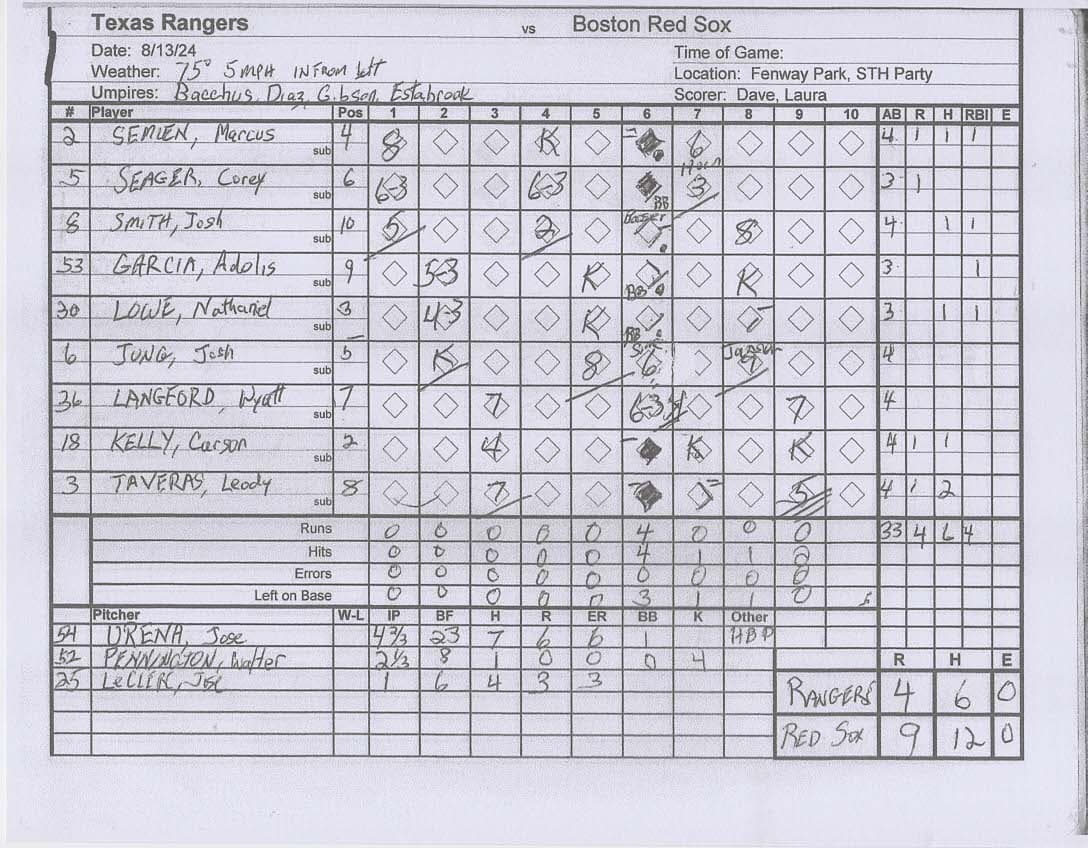 Texas Rangers vs Boston Red Sox
Date: 8/13/24 Time of Game:
Weather: 75° 5 mPH IN From left Location: Fenway Park, STH Party
Umpires: Bacchus, Diaz, Gibson, Estabrook Scorer: Dave, Laura
# Player Pos 1 2 3 4 5 6 7 8 9 10 AB R H RBI E
2 SEMIEN, Marcus 4 8 K 6 4 1 1 1
sub Horn
5 SEAGER, Corey 6 6-3 6-3 BB 3 3 1
sub
8 SmiTH, Josh 10 5 2 Booser 8 4 1 1
sub
53 GARCIA, Adolis 9 5-3 K BB K 3 1
sub
30 LOWE, Nathaniel 3 4-3 K BB 3 1 1
sub
6 JUNG, Josh 5 K 8 6 Jansen 4
sub
36 LANGFORD, Wyatt 7 7 6-3 7 4
sub
18 KELLY, Carson 2 4 K K 4 1 1
sub
3 TAVERAS, Leody 8 7 5 4 1 2
sub
Runs 0 0 0 0 0 4 0 0 0 33 4 6 4
Hits 0 0 0 0 0 4 1 1 0
Errors 0 0 0 0 0 0 0 0 0
Left on Base 0 0 0 0 0 3 1 1 0 5
Pitcher W-L IP BF H R ER BB K Other
54 URENA, Jose 4 2/3 23 7 6 6 1 HBP
52 PENNINGTON, Walter 2 1/3 8 1 0 0 0 4 R H E
25 LeCLERC, Jose 1 6 4 3 3
RANGERS 4 6 0
RED SOX 9 12 0